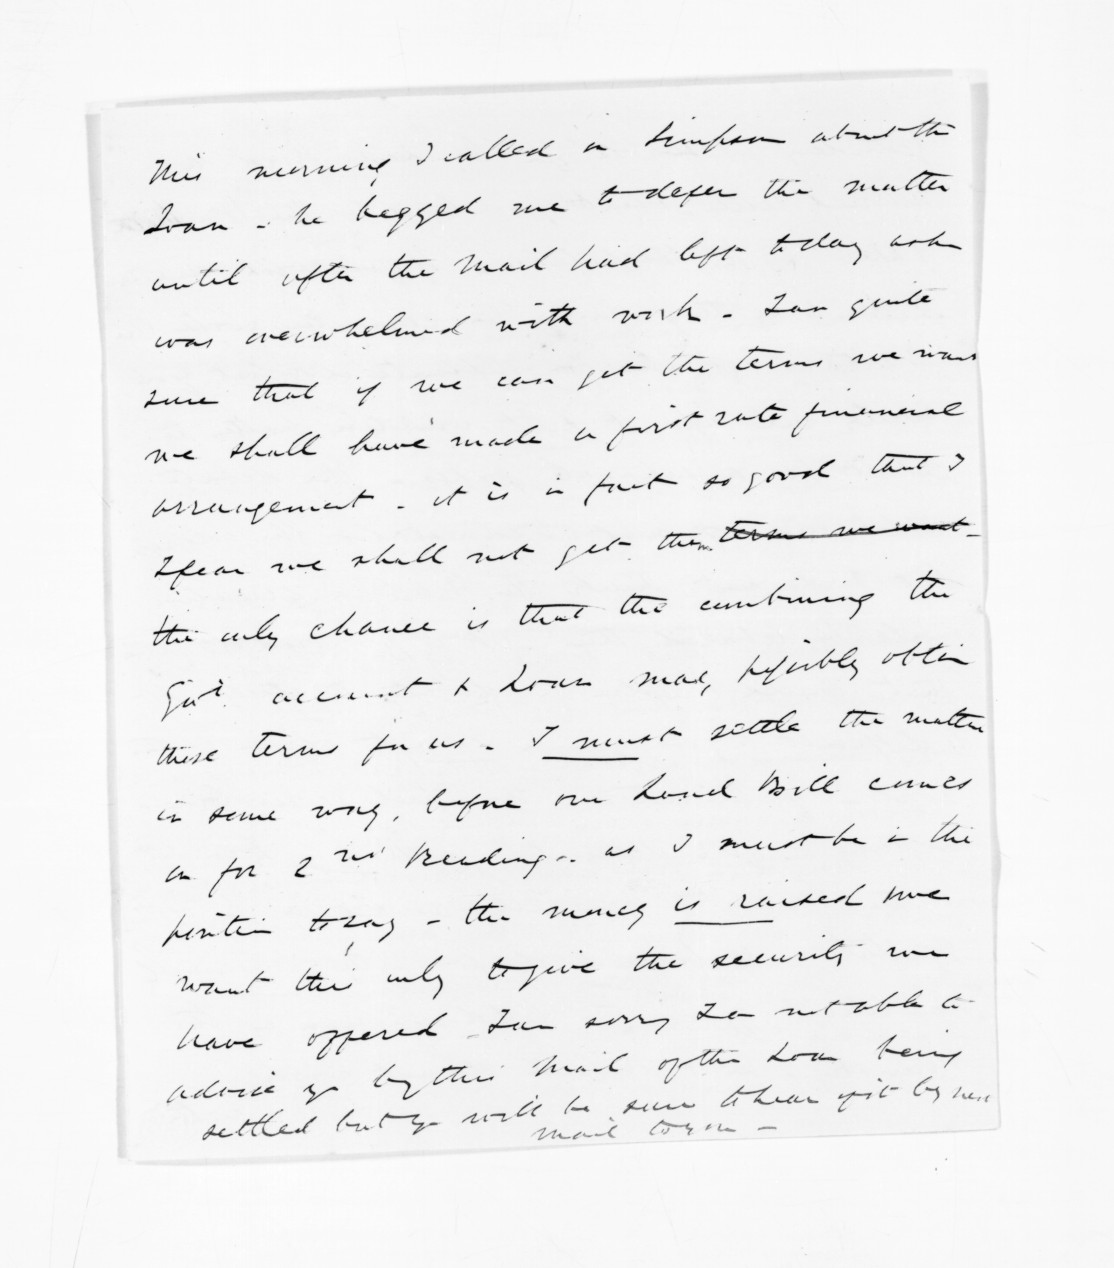 This morning I called on Simpson about the
Loan - he begged me to defer the matter
until after the Mail had left today as he
was overwhelmed with work - I am quite
sure that if we can get the terms we want
we shall have made a first rate financial
arrangement - it is in fact so good that I
I fear we shall not get them terms we want -
the only chance is that the combining the
Govt. account & Loan may possibly obtain
these terms for us - I must settle the matter
in some way, before our Land Bill comes
on for 2nd Reading - as I must be in the
position to say - the money is raised & we
want this only to give the security we
have offered - I am sorry I am not able to
advise you by this Mail of the Loan being
settled but you will be sure to hear of it by next
mail to you -